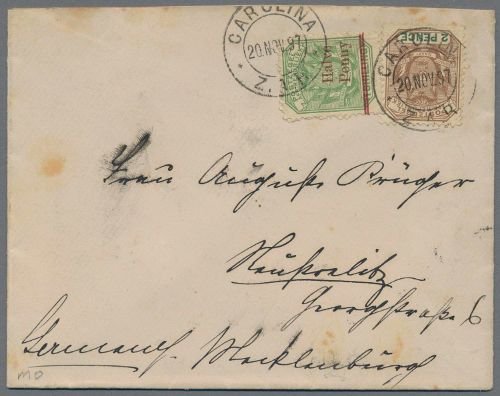 CAROLINA
20.NOV.97
Z.A.R.
Halve
Penny
2 PENCE
CAROLINA
20.NOV.97
Z.A.R.
Frau Auguste Krüger
Neustrelitz
Georgstraße 6
Germany. Mecklenburg
MO